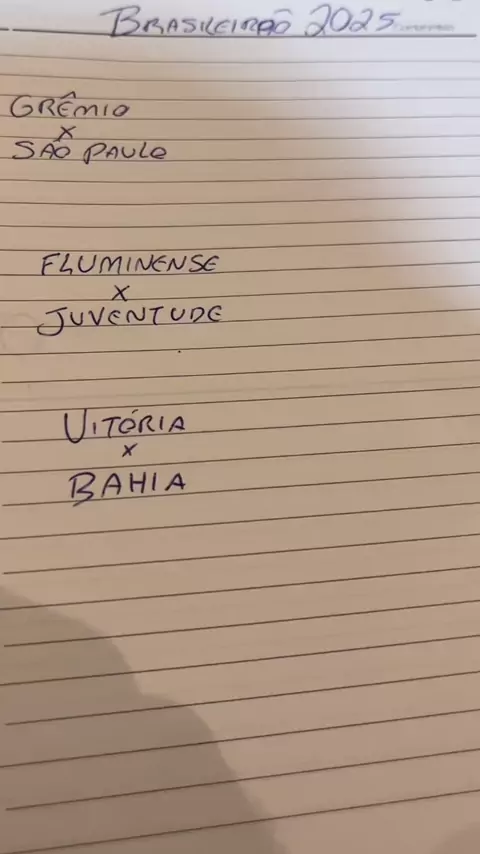 BRASILEIRÃO 2025
GRÊMIO
X
SÃO PAULO
FLUMINENSE
X
JUVENTUDE
VITÓRIA
X
BAHIA